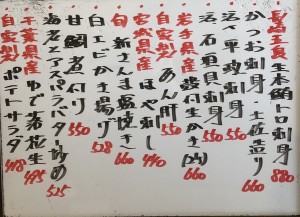 長崎県産生本鮪トロ刺身 880
かつお刺身・土佐造り 660
活〆平政刺身 550
活石垣貝刺身 550
岩手県産殻付生かき(2ケ) 660
自家製あん肝 550
宮城県産ほや刺し 440
旬新さんま塩焼き 660
白エビかき揚げ 528
甘鯛煮付け 550
海老とアスパラバター炒め 525
千葉県産ゆで落花生 495
自家製ポテトサラダ 418